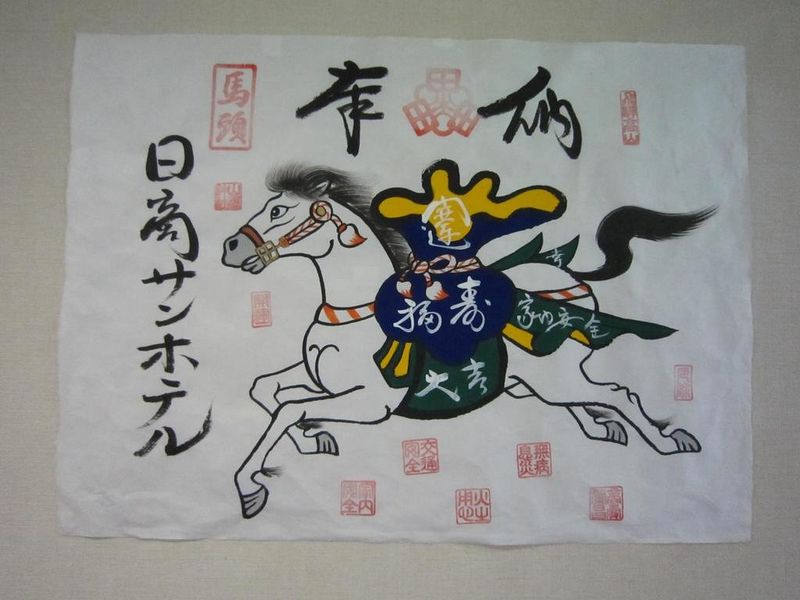 奉納
馬頭
日商サンホテル
運
福寿
大吉
家内安全
交通安全
無病息災
家内安全
火之用心